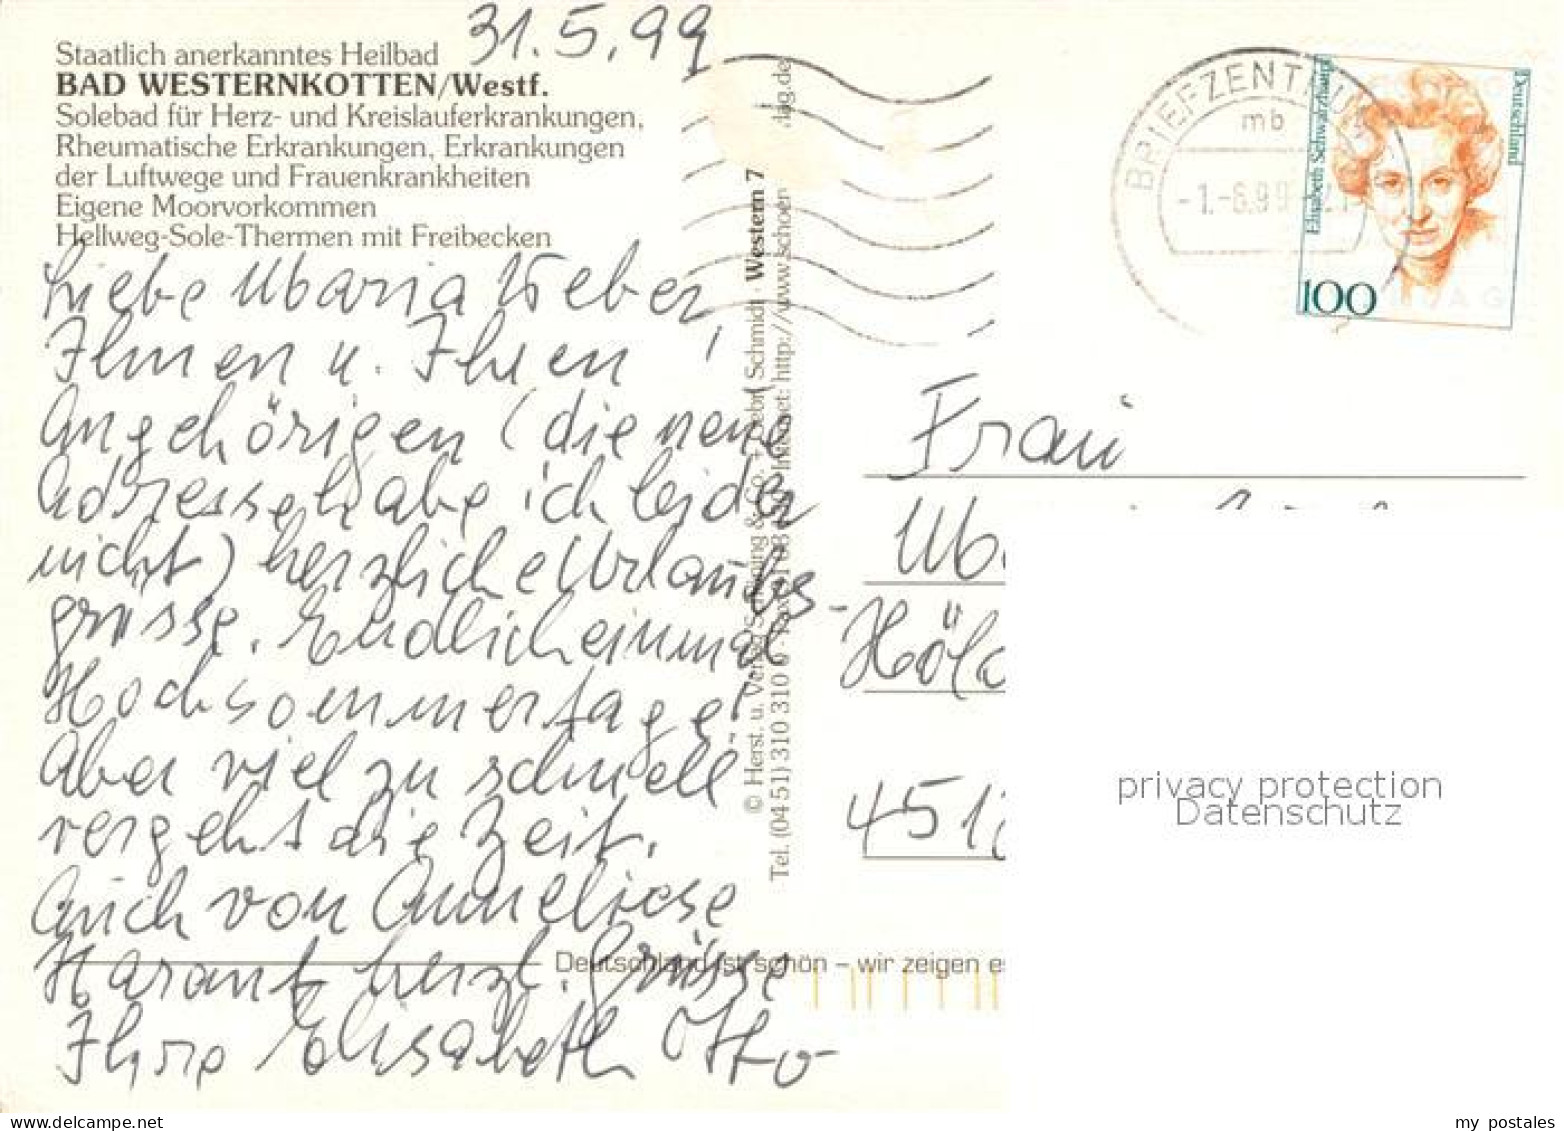 31.5.99
Staatlich anerkanntes Heilbad
BAD WESTERNKOTTEN/Westf.
Solebad für Herz- und Kreislauferkrankungen,
Rheumatische Erkrankungen, Erkrankungen
der Luftwege und Frauenkrankheiten
Eigene Moorvorkommen
Hellweg-Sole-Thermen mit Freibecken
Liebe Maria Weber,
Ihnen u. Ihren
Angehörigen (die neue
Adresse habe ich leider
nicht) herzliche Urlaubs-
grüsse. Endlich einmal
Hochsommertage!
Aber viel zu schnell
vergeht die Zeit.
Auch von Anneliese
Harant herzl. Grüsse
Ihre Elisabeth Otto
© Herst. u. Verlag Schöning & Co. + Gebr. Schmidt · Western 7
Tel. (04 51) 310 310 Internet: http://www.schoen dag.de
Deutschland ist schön – wir zeigen es
BRIEFZENTRUM
mb
-1.-6.99
Elisabeth Schwarzhaupt
Deutschland
100
Frau
Höl
451
privacy protection
Datenschutz
www.delcampe.net
my_postales